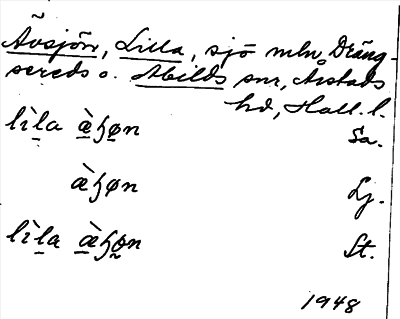 Åvsjön, Lilla, sjö mln Dräng-
sereds o. Abilds snr, Årstads
hd, Hall. l.
lìla æ̀ɧøn Sa.
æ̀ɧøn Lj.
lìla æ̀ɧøn St.
1948